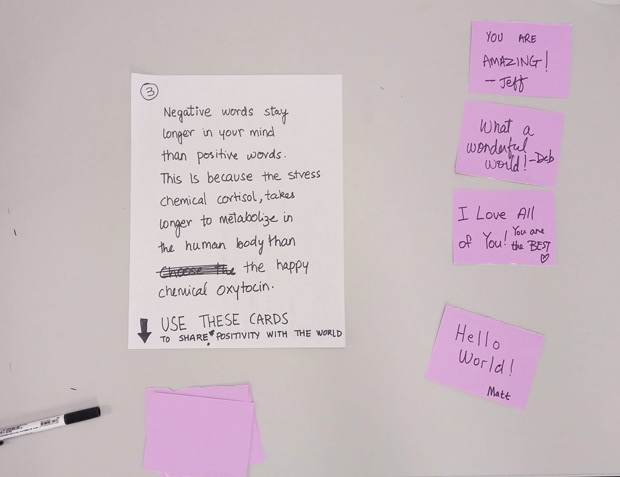 3
Negative words stay
longer in your mind
than positive words.
This is because the stress
chemical cortisol, takes
longer to metabolize in
the human body than
the happy
chemical oxytocin.
USE THESE CARDS
TO SHARE POSITIVITY WITH THE WORLD
YOU ARE
AMAZING!
- Jeff
What a
wonderful
world! -Deb
I Love All
of You! You are
the BEST
Hello
World!
Matt